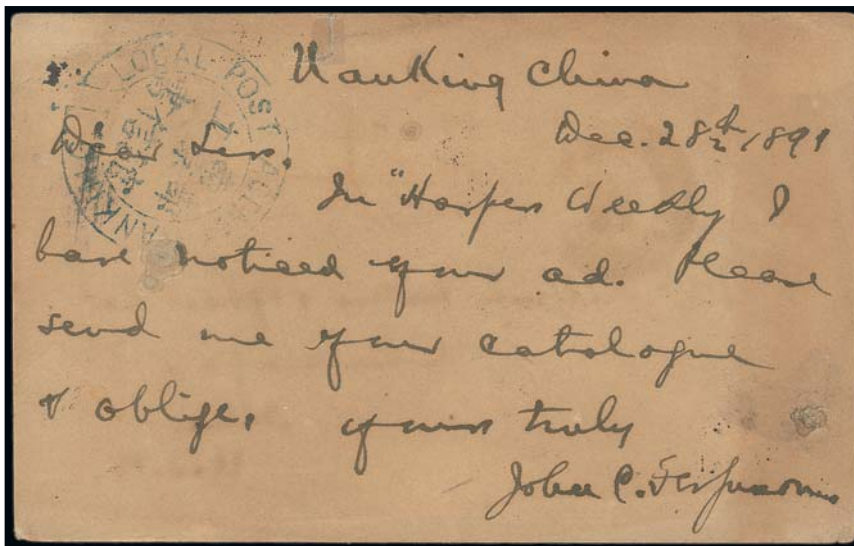 NanKing China
Dec. 28th, 1899
Dear Sirs,
In "Harpers Weekly I
have noticed your ad. Please
send me your catalogue
& oblige,
yours truly
John C. Ferguson
LOCAL POST